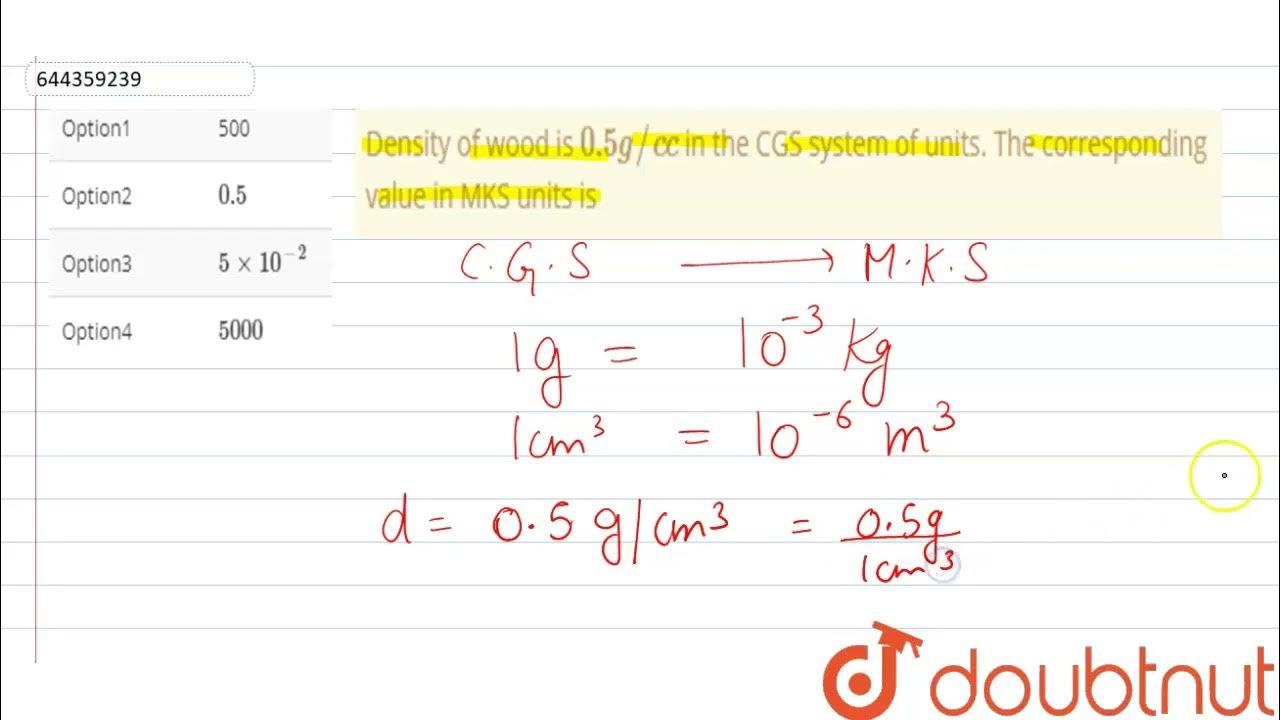 644359239
Option1 500
Option2 0.5
Option3 5 × 10⁻²
Option4 5000
Density of wood is 0.5g/cc in the CGS system of units. The corresponding
value in MKS units is
C.G.S ⟶ M.K.S
1g = 10⁻³ Kg
1cm³ = 10⁻⁶ m³
d = 0.5 g/cm³ = 0.5g
1cm³
doubtnut